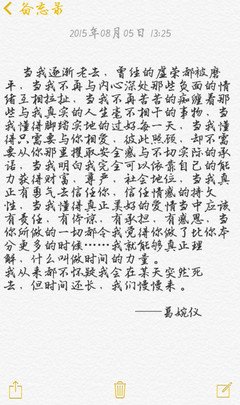 备忘录
2015年08月05日 13:25
当我逐渐老去，曾经的虚荣都被磨
平，当我不再与内心深处那些负面的情
绪互相拉扯，当我不再苦苦的痴缠着那
些与真实的人生毫不相干的事物，当
我懂得脚踏实地的过好每一天，当我懂
得只需要与你相爱，彼此照顾，却不需
要从你那里攫取安全感与不切实际的承
诺，当我明白我完全可以依靠自己的能
力获得财富，尊严，社会地位，当我真
正有勇气去信任你，信任情感的持久
性，当我懂得真正美好的爱情当中应该
有责任，有体谅，有承担，有感恩，当
你所做的一切都令我觉得你做了比你本
分更多的时候……我就能够真正理
解，什么叫做时间的力量。
我从来都不怀疑我会在某天突然死
去，但时间还长，我们慢慢来。
——葛婉仪